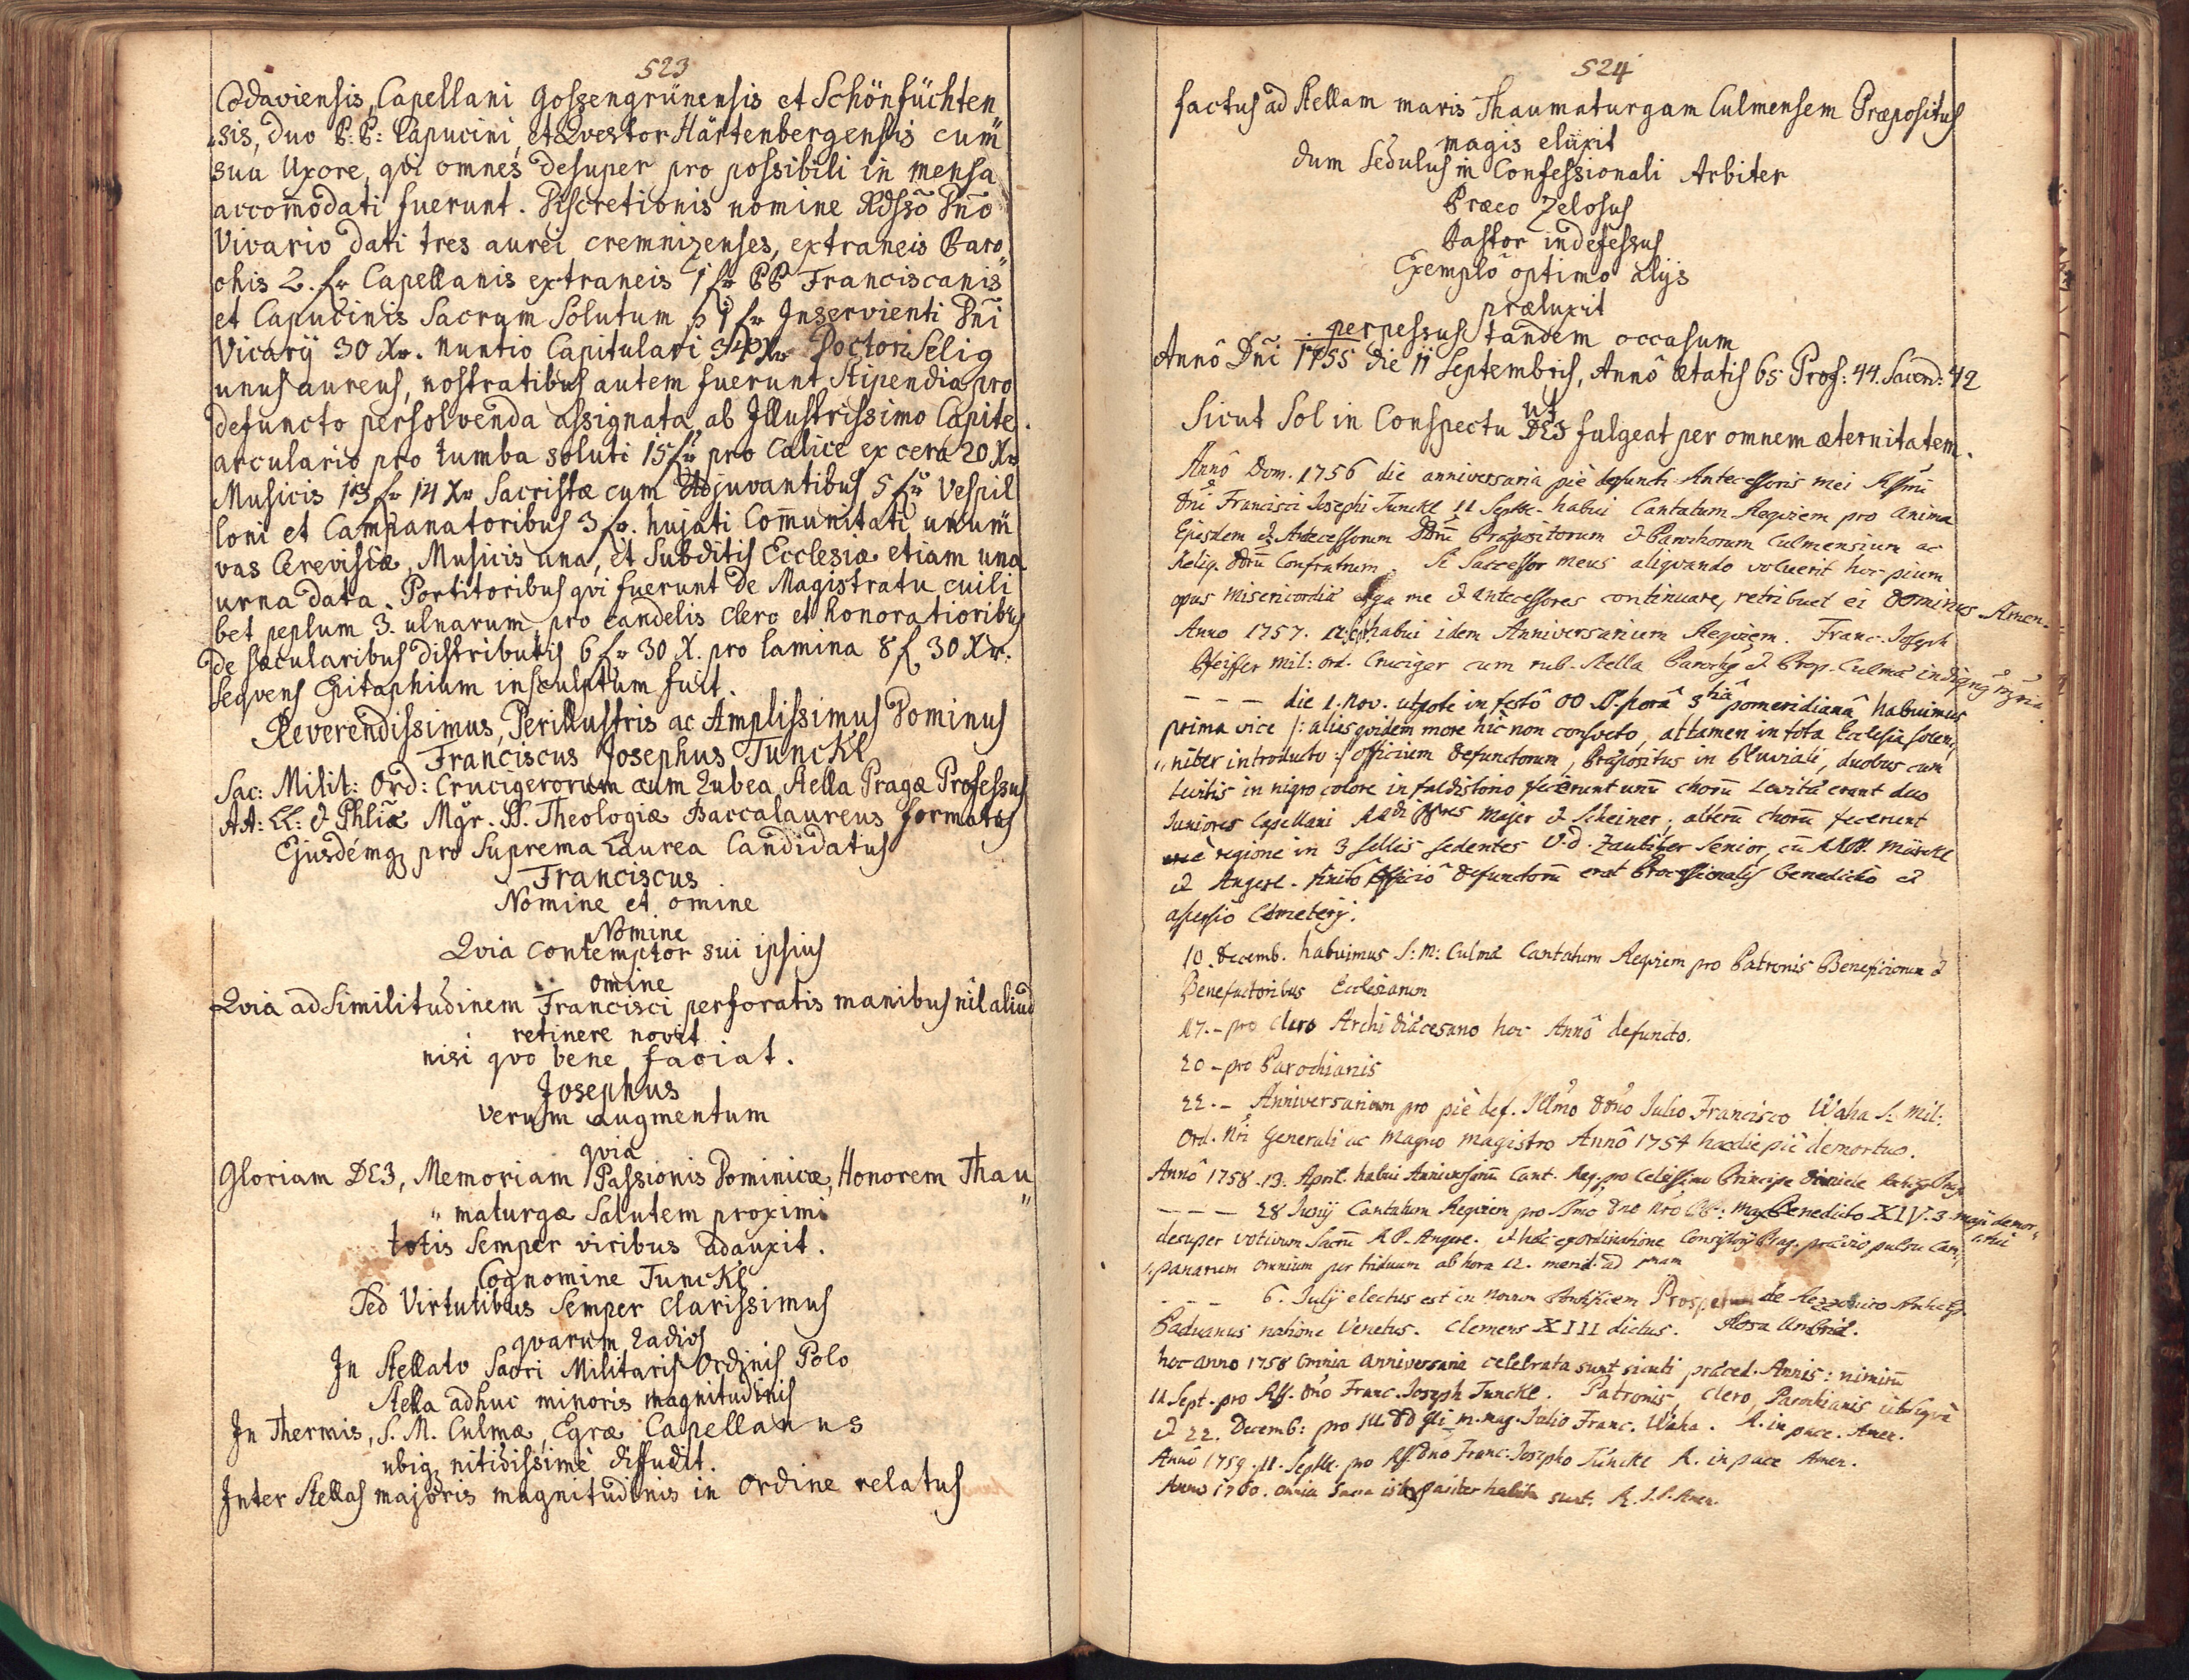 523
Codaviensis, Capellani Gossengrünensis et Schönfüchten
„sis, duo P: P: Capucini, et Qvestor Härtenbergensis cum
sua Uxore, qvi omnes desuper pro possibili in mensa
accom̄odati fuerunt. Discretionis nomine Rdsso Dn̄o
Vivario dati tres aurei cremnizenses, extraneis Paro„
chis 2. fr Capellanis extraneis 1 fr PP Franciscanis
et Capucinis Sacrum Solutum p 1 fr Inservienti Dn̄i
Vicarÿ 30 Xr. Nuntio Capitulari 34 Xr Doctori Selig
unus aureus, nostratibus autem fuerunt Stipendia pro
defuncto persolvenda assignata ab Illustrissimo Capite.
arculario pro tumba soluti 15 fr pro Calice ex cera 20 Xr
Musicis 13 fr 14 Xr Sacristæ cum Adjuvantibus 5 fr Vespil
loni et Campanatoribus 3 fr. hujati Com̄unitati unum
vas Cerevisiæ, Musicis una, et Subditis Ecclesiæ etiam una
urna data. Portitoribus qvi fuerunt de Magistratu cuili
bet peplum 3. ulnarum pro candelis Clero et honoratioribus
de sæcularibus distributis 6 fr 30 X. pro lamina 8 f 30 Xr.
seqvens Epitaphium insculptum fuit.
Reverendissimus, Perillustris ac Amplissimus Dominus
Franciscus Josephus Tunckl
Sac: Milit: Ord: Crucigerorum cum Rubea Stella Pragæ Professus
AA: LL: & Phliæ Mgr. SS. Theologiæ Baccalaureus formatus
Ejusdémq pro Suprema Laurea Candidatus
Franciscus
Nomine et omine
Nomine
Qvia contemptor sui ipsius
omine
Qvia ad Similitudinem Francisci perforatis manibus nil aliud
retinere novit
nisi qvo bene faciat.
Josephus
verum augmentum
qvia
Gloriam DEI, Memoriam Passionis Dominicæ, Honorem Thau„
„maturgæ Salutem proximi
totis Semper viribus adauxit.
Cognomine Tunckl
Sed Virtutibus Semper Clarissimus
qvarum Radios
In Stellato Sacri Militaris Ordinis Polo
Stella adhuc minoris magnitudinis
In Thermis, S. M. Culmæ, Egræ Capellanus
ubiq nitidissimè diffudit.
Inter Stellas majoris magnitudinis in Ordine relatus
524
factus ad Stellam maris Thaumaturgam Culmensem Præpositus
magis eluxit
dum Sedulus in Confessionali Arbiter
Præco Zelosus
Pastor indefessus
Exemplo optimo alÿs
præluxit
perpessus tandem occasum
Annô Dn̄i 1755 die 11 Septembris, Annô ætatis 65 Prof: 44. Sacerd: 42
ut
Sicut Sol in Conspectu DEI fulgeat per omnem æternitatem.
Annô Dom. 1756 die anniversaria piè defuncti Antecessoris mei
Dn̄i Francisci Josephi Tunckl 11 Septbr. habui Cantatum Reqviem pro anima
Ejusdem & Antecessorum Præpositorum & Parochorum Culmensium ac
Reliq. Confratrum. Si Successor meus aliqvando voluerit hoc pium
opus misericordiæ erga me & antecessores continuare, retribuet ei Dominus. Amen.
Anno 1757. habui idem Anniversarium Reqviem. Franc. Joseph
Pfeiffer mil: ord. Cruciger cum rub. Stella & Prop. Culmæ
— — — die 1. Nov. utpote in festô OO SS. horâ 3tiâ pomeridianâ habuimus
prima vice /: alias qvidem more hic non consveto, attamen in tota Ecclesia solem„
„niter introducto :/ officium defunctorum, Præpositus in Pluviali, duobus cum
Levitis in nigro colore in faldistorio fecerunt unū chorū Levitæ erant duo
Juniores Capellani Majer & Scheiner; alterū chorū fecerunt
è regione in 3 sellis sedentes senior, cū Mürckl
et Angerl. finitô Officiô defunctorū erat Processionalis benedictio et
aspersio Cæmeterÿ.
10. Decemb. habuimus S: M: Culmæ Cantatum Reqviem pro Patronis Beneficiorum &
Benefactoribus Ecclesiarum
17. - pro Clero Archidiæcesano hoc Annô defuncto.
20 - pro Parochianis
22. - Anniversarium pro piè def. Illmo Julio Francisco Waha S. Mil:
Ord. Nri Generali ac Magno Magistro Annô 1754 hac die piè demortuo.
Annô 1758. 13. April. habui Anniversariū Cant. Req. pro Celsissimo Principe
— — — 28 Junÿ Cantatum Reqviem pro Benedicto XIV. 3. Maji demor„
desuper votivum Sacrū R.P. Angerl. & hoc ex ordinatione Consistorÿ Prag. prævio pulsu Cam„ „tui
„panarum omnium per triduum ab hora 12. merid. ad 1mam
— — — 6. Julÿ electus est in novum Pontificem de Rezzonico
Paduanus natione Venetus. Clemens XIII dictus. Rosa Umbriæ.
hoc anno 1758 omnia anniversaria celebrata sunt sicuti præced. Annis: nimirū
11 Sept. pro Franc. Joseph Tunckl. Patronis, Clero, Parochianis
& 22. Decemb: pro Julio Franc. Waha. R. in pace. Amen.
Annô 1759. 11. Septbr. pro Franc. Josepho Tünckl R. in pace Amen.
Anno 1760. omnia Sacra pariter habita sunt. R. I. P. Amen.